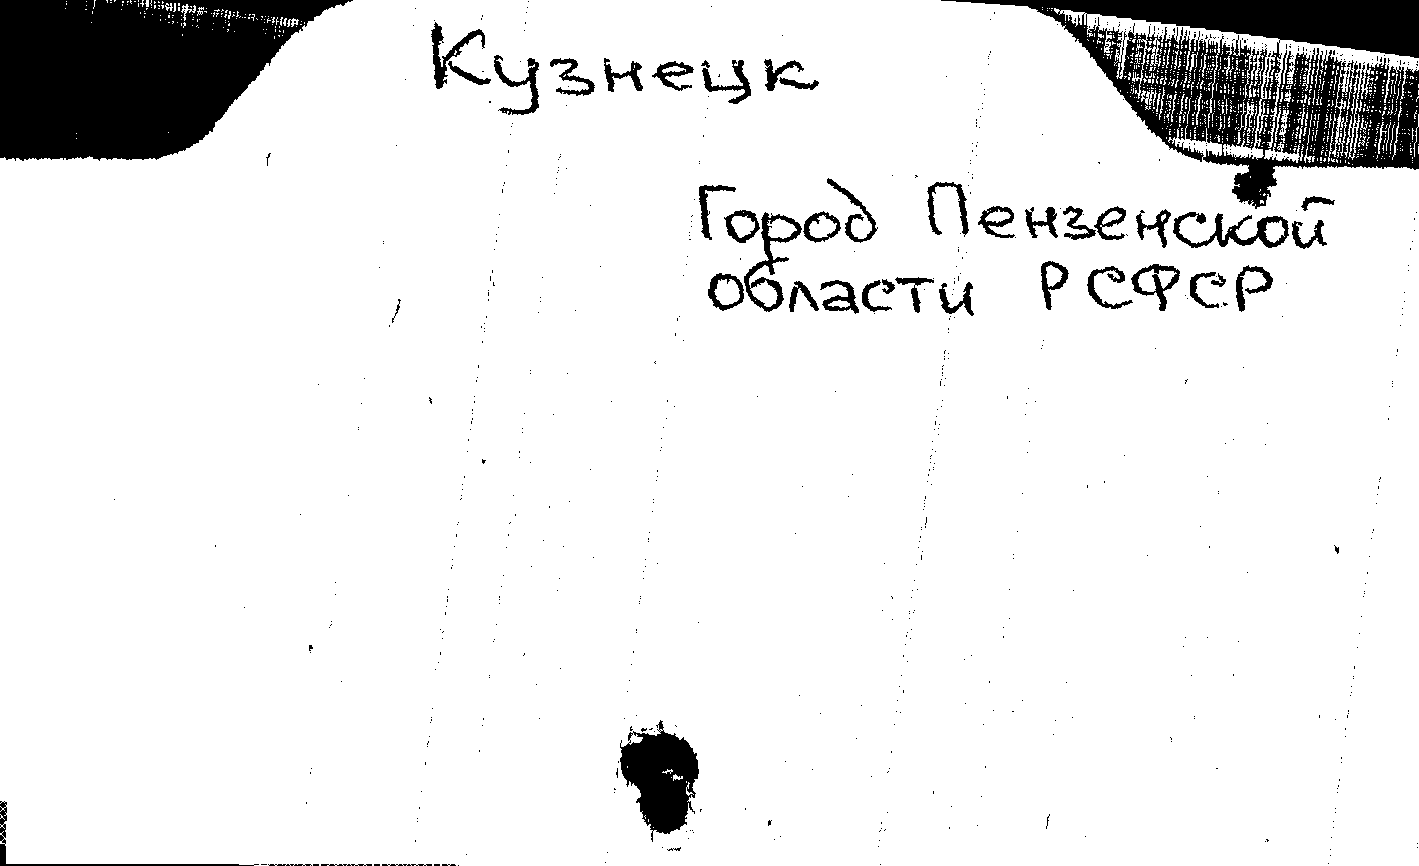 Кузнецк
Город Пензенской
области РСФСР